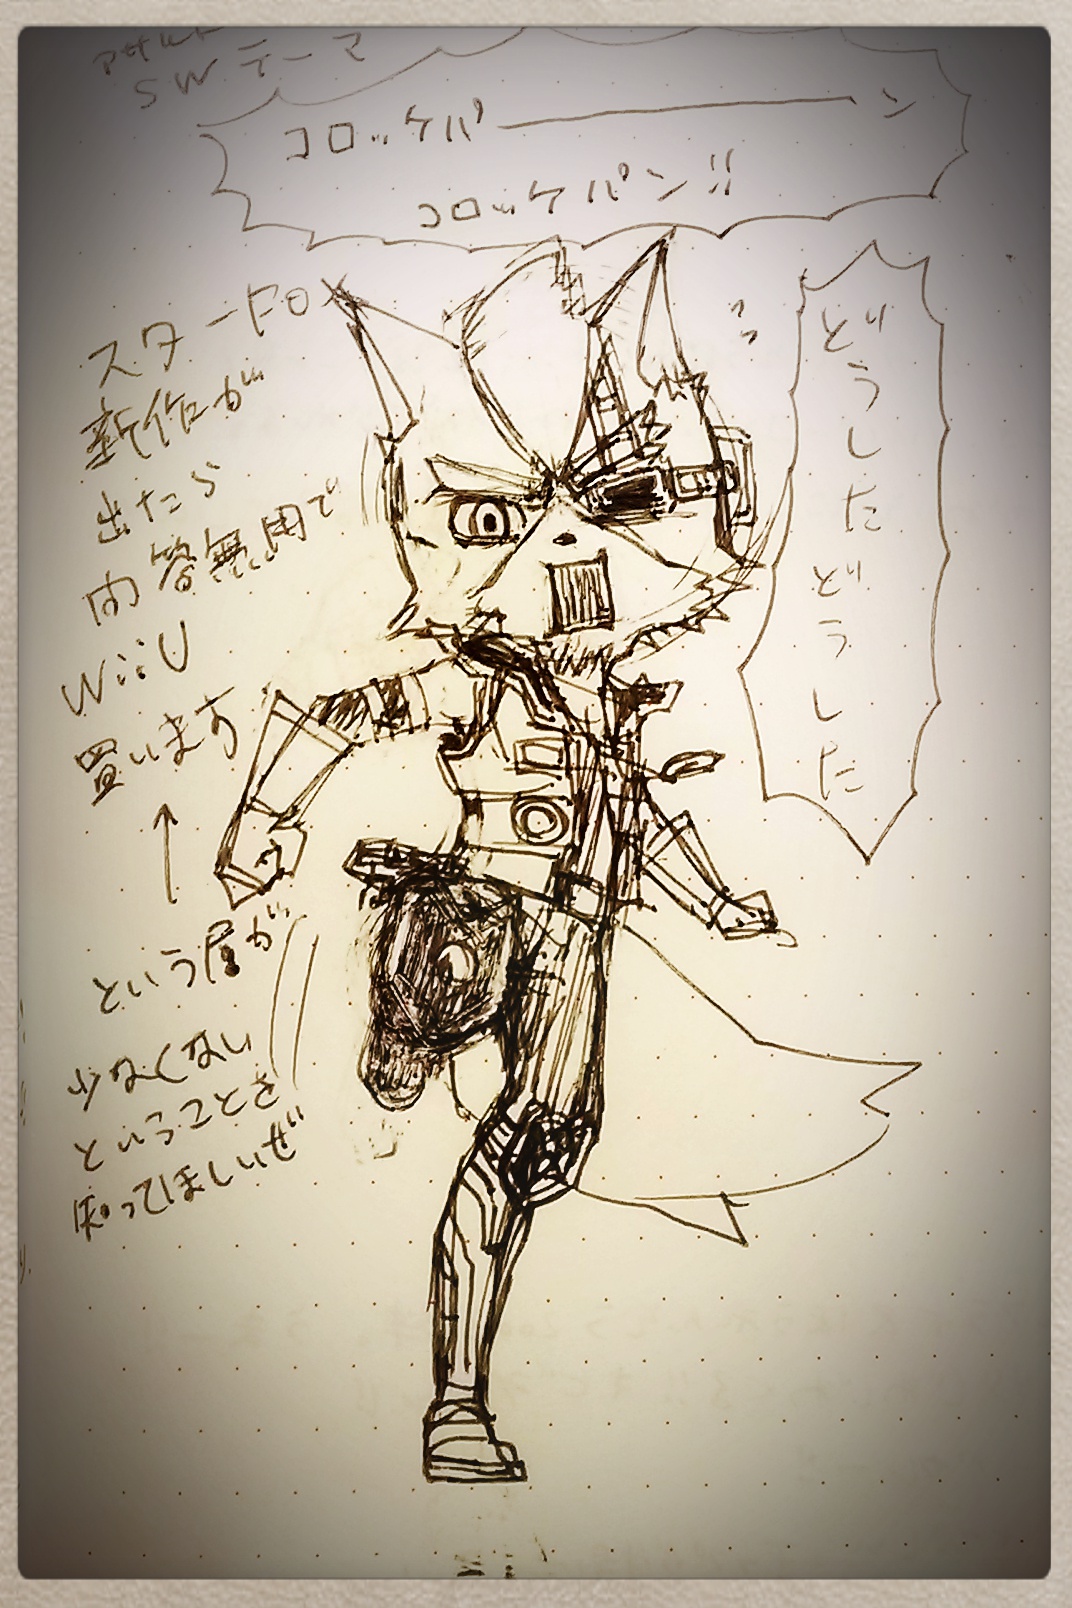 アサルト
SWテーマ
コロッケパーーーン
コロッケパン!!
どうしたどうした
スターFOX
新作が
出たら
問答無用で
WiiU
買います
↑
という層が
少なくない
ということを
知ってほしいぜ